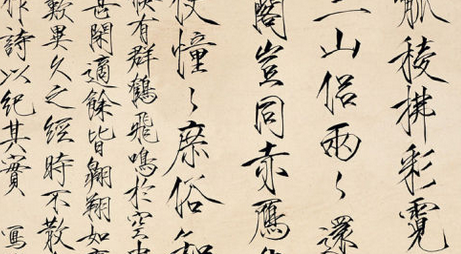 觚稜拂彩霓
三山侶兩〻還
閣豈同赤鴈
使憧〻庶俗知
倏有群鶴飛鳴於空中
甚閑適餘皆翱翔如
歎異久之經時不散
作詩以紀其實